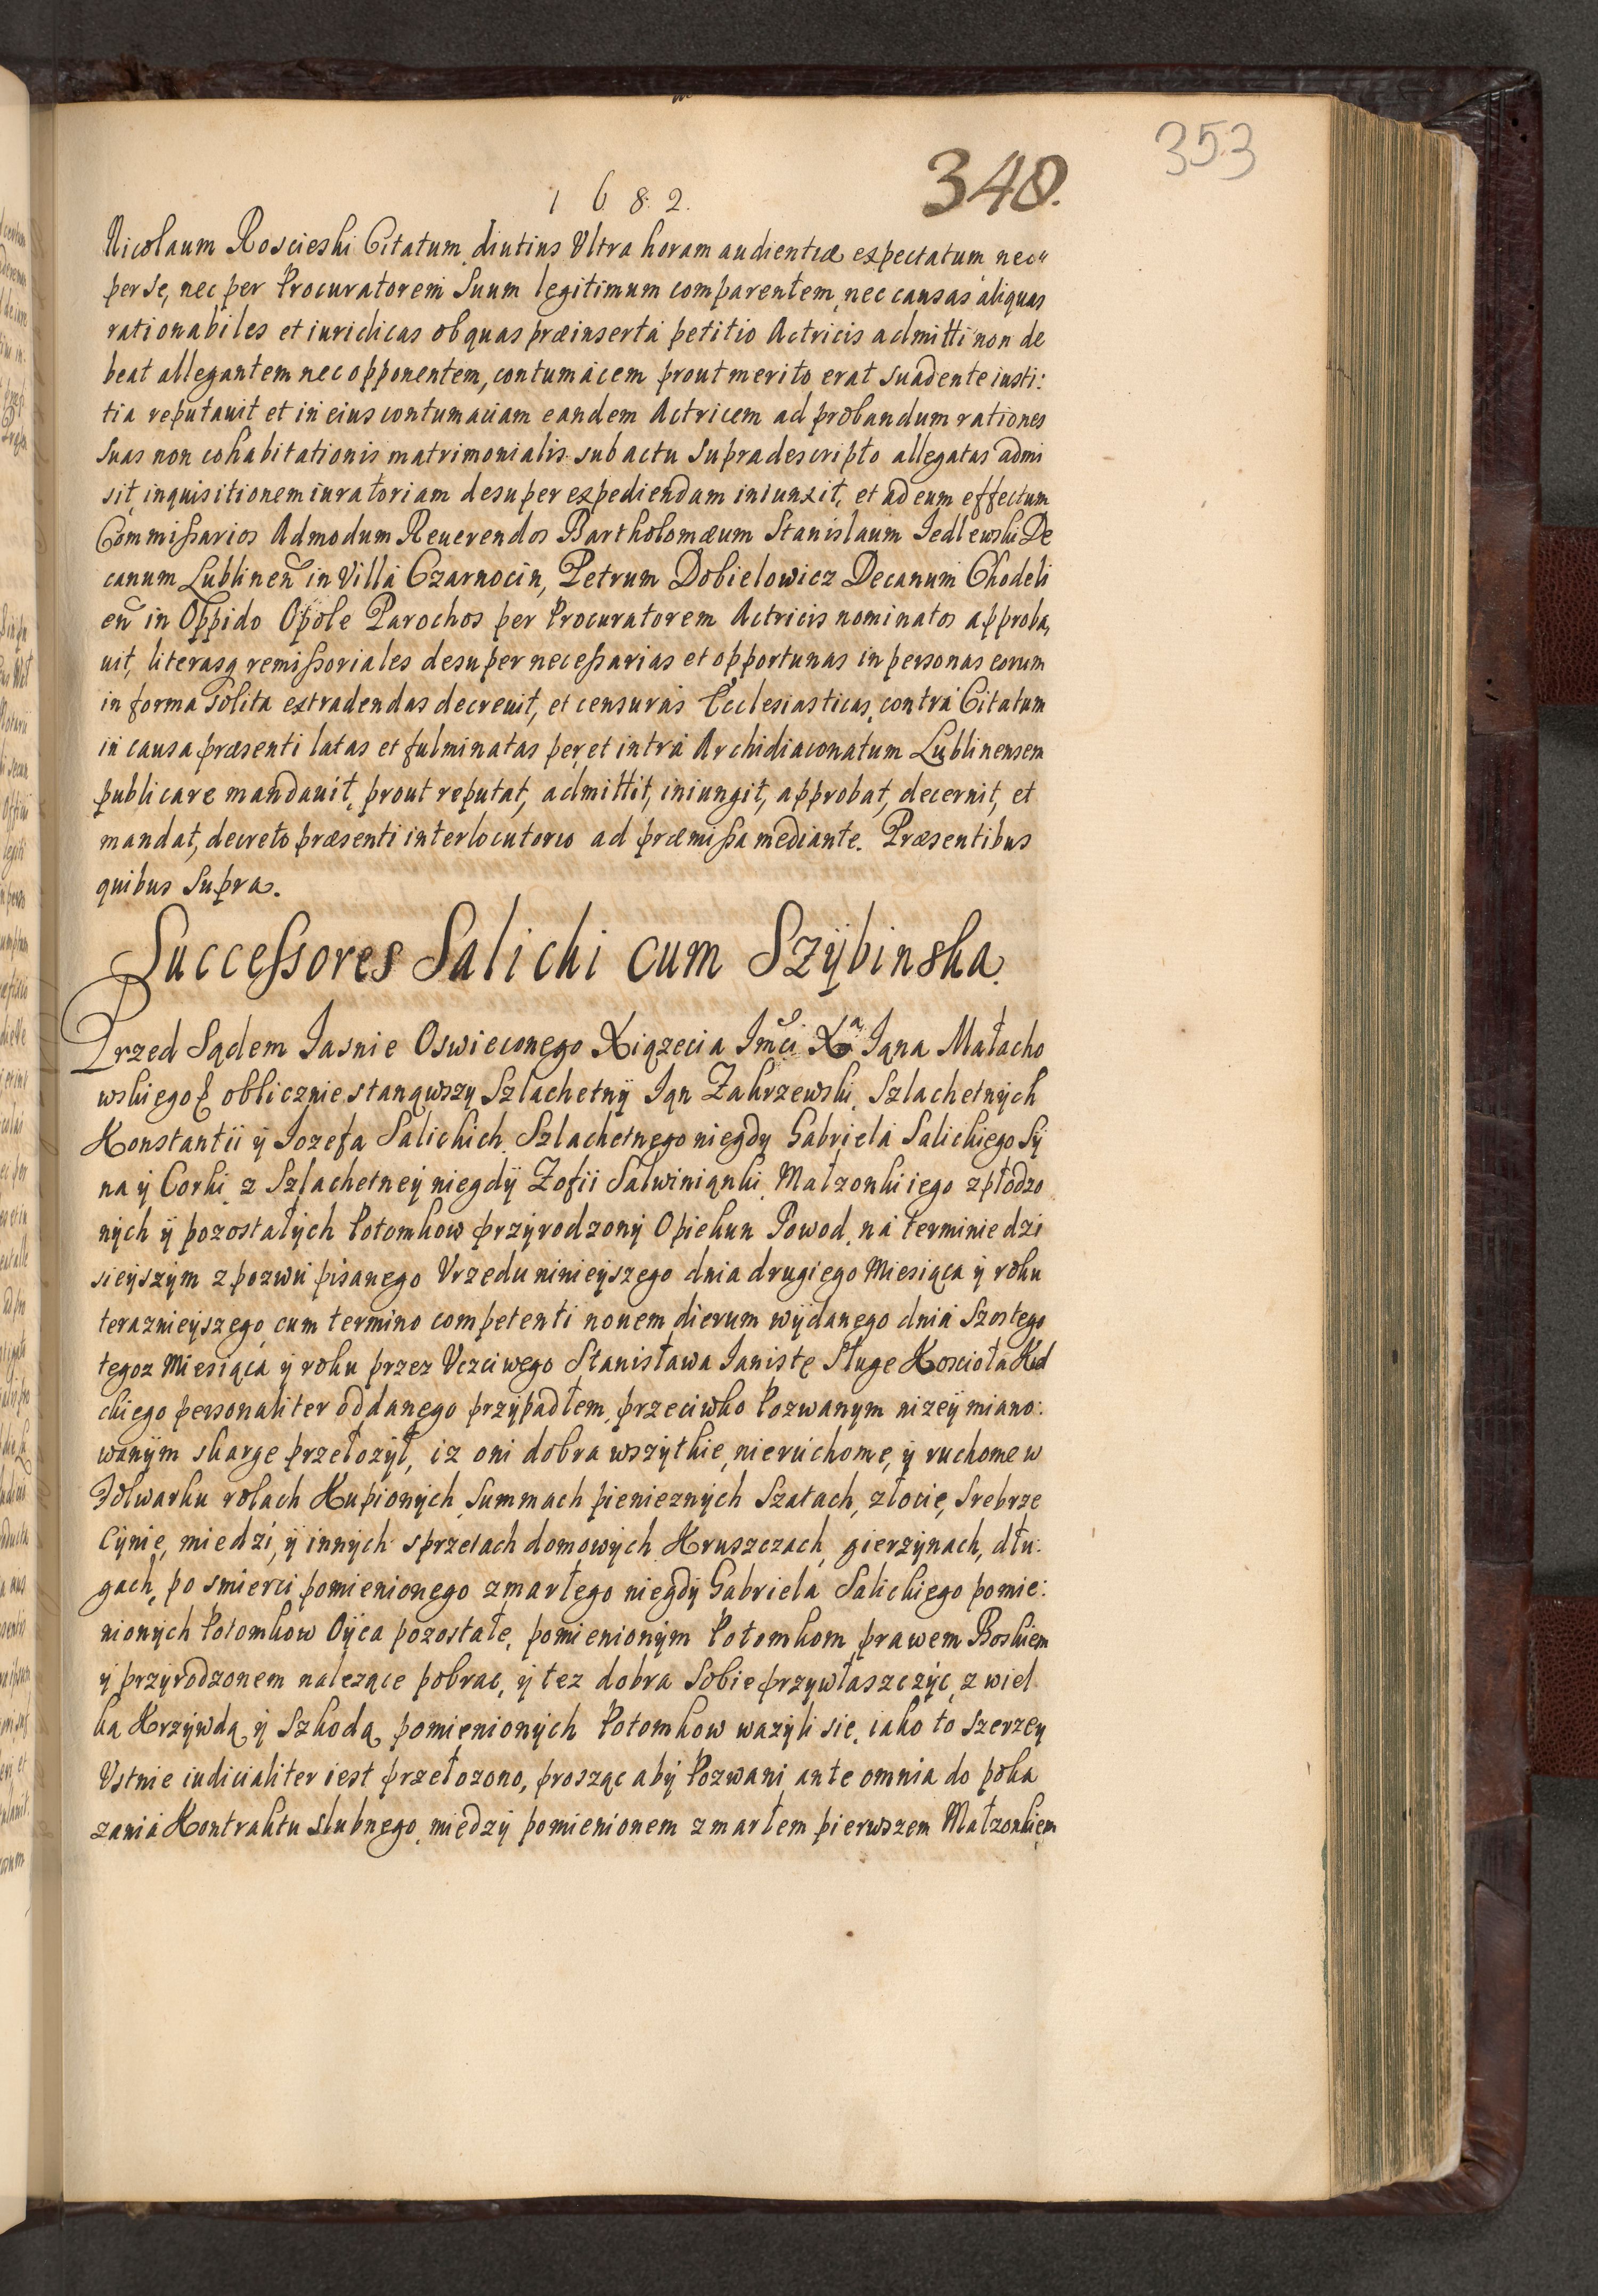 353
348.
1 6 8. 2.
Nicolaum Roscieski Citatum diutius Ultra horam audientiæ expectatum nec
per se, nec per Procuratorem Suum legitimum comparentem, nec causas aliquas
rationabiles et iuridicas ob quas præinserta petitio Actricis admitti non de
beat allegantem nec opponentem, contumacem prout merito erat suadente iusti:
tia reputauit et in eius contumaciam eandem Actricem ad probandum rationes
suas non cohabitationis matrimonialis sub actu Supradescripto allegatas admi
sit, inquisitionem iuratoriam desuper expediendam iniunxit, et ad eum effectum
Commissarios Admodum Reuerendos Bartholomæum Stanislaum Jedlewski De
canum Lublineñ in Villa Czarnocin, Petrum Dobielowicz Decanum Chodeli
eñ in Oppido Opole Parochos per Procuratorem Actricis nominatos approba,
uit, literasq remissoriales desuper necessarias et opportunas in personas eorum
in forma Solita extradendas decreuit, et censuras Ecclesiasticas contra Citatum
in causa præsenti latas et fulminatas per, et intra Archidiaconatum Lublinensem
publicare mandauit, prout reputat, admittit, iniungit, approbat, decernit, et
mandat, decreto præsenti interlocutorio ad præmissa mediante. Præsentibus
quibus Supra.
Successores Salicki cum Szÿbinska.
Przed Sądem Jasnie Oswieconego Xiązecia Jmci Xa Jana Małacho
wskiego obliczniestanąwszy Szlachetnÿ Jan Zakrzewski, Szlachetnÿch
Konstantii ÿ Jozefa Salickich Szlachetnego niegdy Gabriela Salickiego Sÿ
na ÿ Corki z Szlachetneÿ niegdÿ Zofii Salwinianki Małzonki iego zpłodzo
nÿch ÿ pozostałÿch Potomkow przÿrodzonÿ Opiekun Powod, na terminie dzi
sieÿszÿm z pozwu pisanego Vrzedu ninieÿszego dnia drugiego Miesiąca ÿ roku
teraznieÿszego cum termino competenti nouem dierum wÿdanego dnia Szostego
tegoz Miesiąca ÿ roku przez Vczciwego Stanisława Janistę Sługe Koscioła Kiel
ckiego personaliter oddanego przÿpadłem, przeciwko Pozwanym nizeÿ miano:
wanÿm skarge przełozÿł, iz oni dobra wszÿtkie, nieruchome, ÿ ruchome w
Folwarku rolach Kupionÿch Summach pienieznÿch Szatach, złocie, Srebrze
Cÿnie, miedzi, ÿ innÿch sprzetach domowÿch Kruszczach, gierzÿnach, dłu:
gach, po smierci pomienionego zmarłego niegdÿ Gabriela Salickiego pomie:
nionÿch Potomkow Oÿca pozostałe, pomienionÿm Potomkom prawem Boskiem
ÿ przÿrodzonem nalezące pobrac, ÿ tez dobra Sobie przÿwłaszczÿc, z wiel
ka Krzÿwdą ÿ Szkodą pomienionÿch Potomkow wazÿli sie, iako to szerzey
Vstnie iudicialiter iest przełozono, prosząc abÿ Pozwani ante omnia do poka
zania Kontraktu slubnego, miedzÿ pomienionem zmarłem pierwszem Małzonkiem